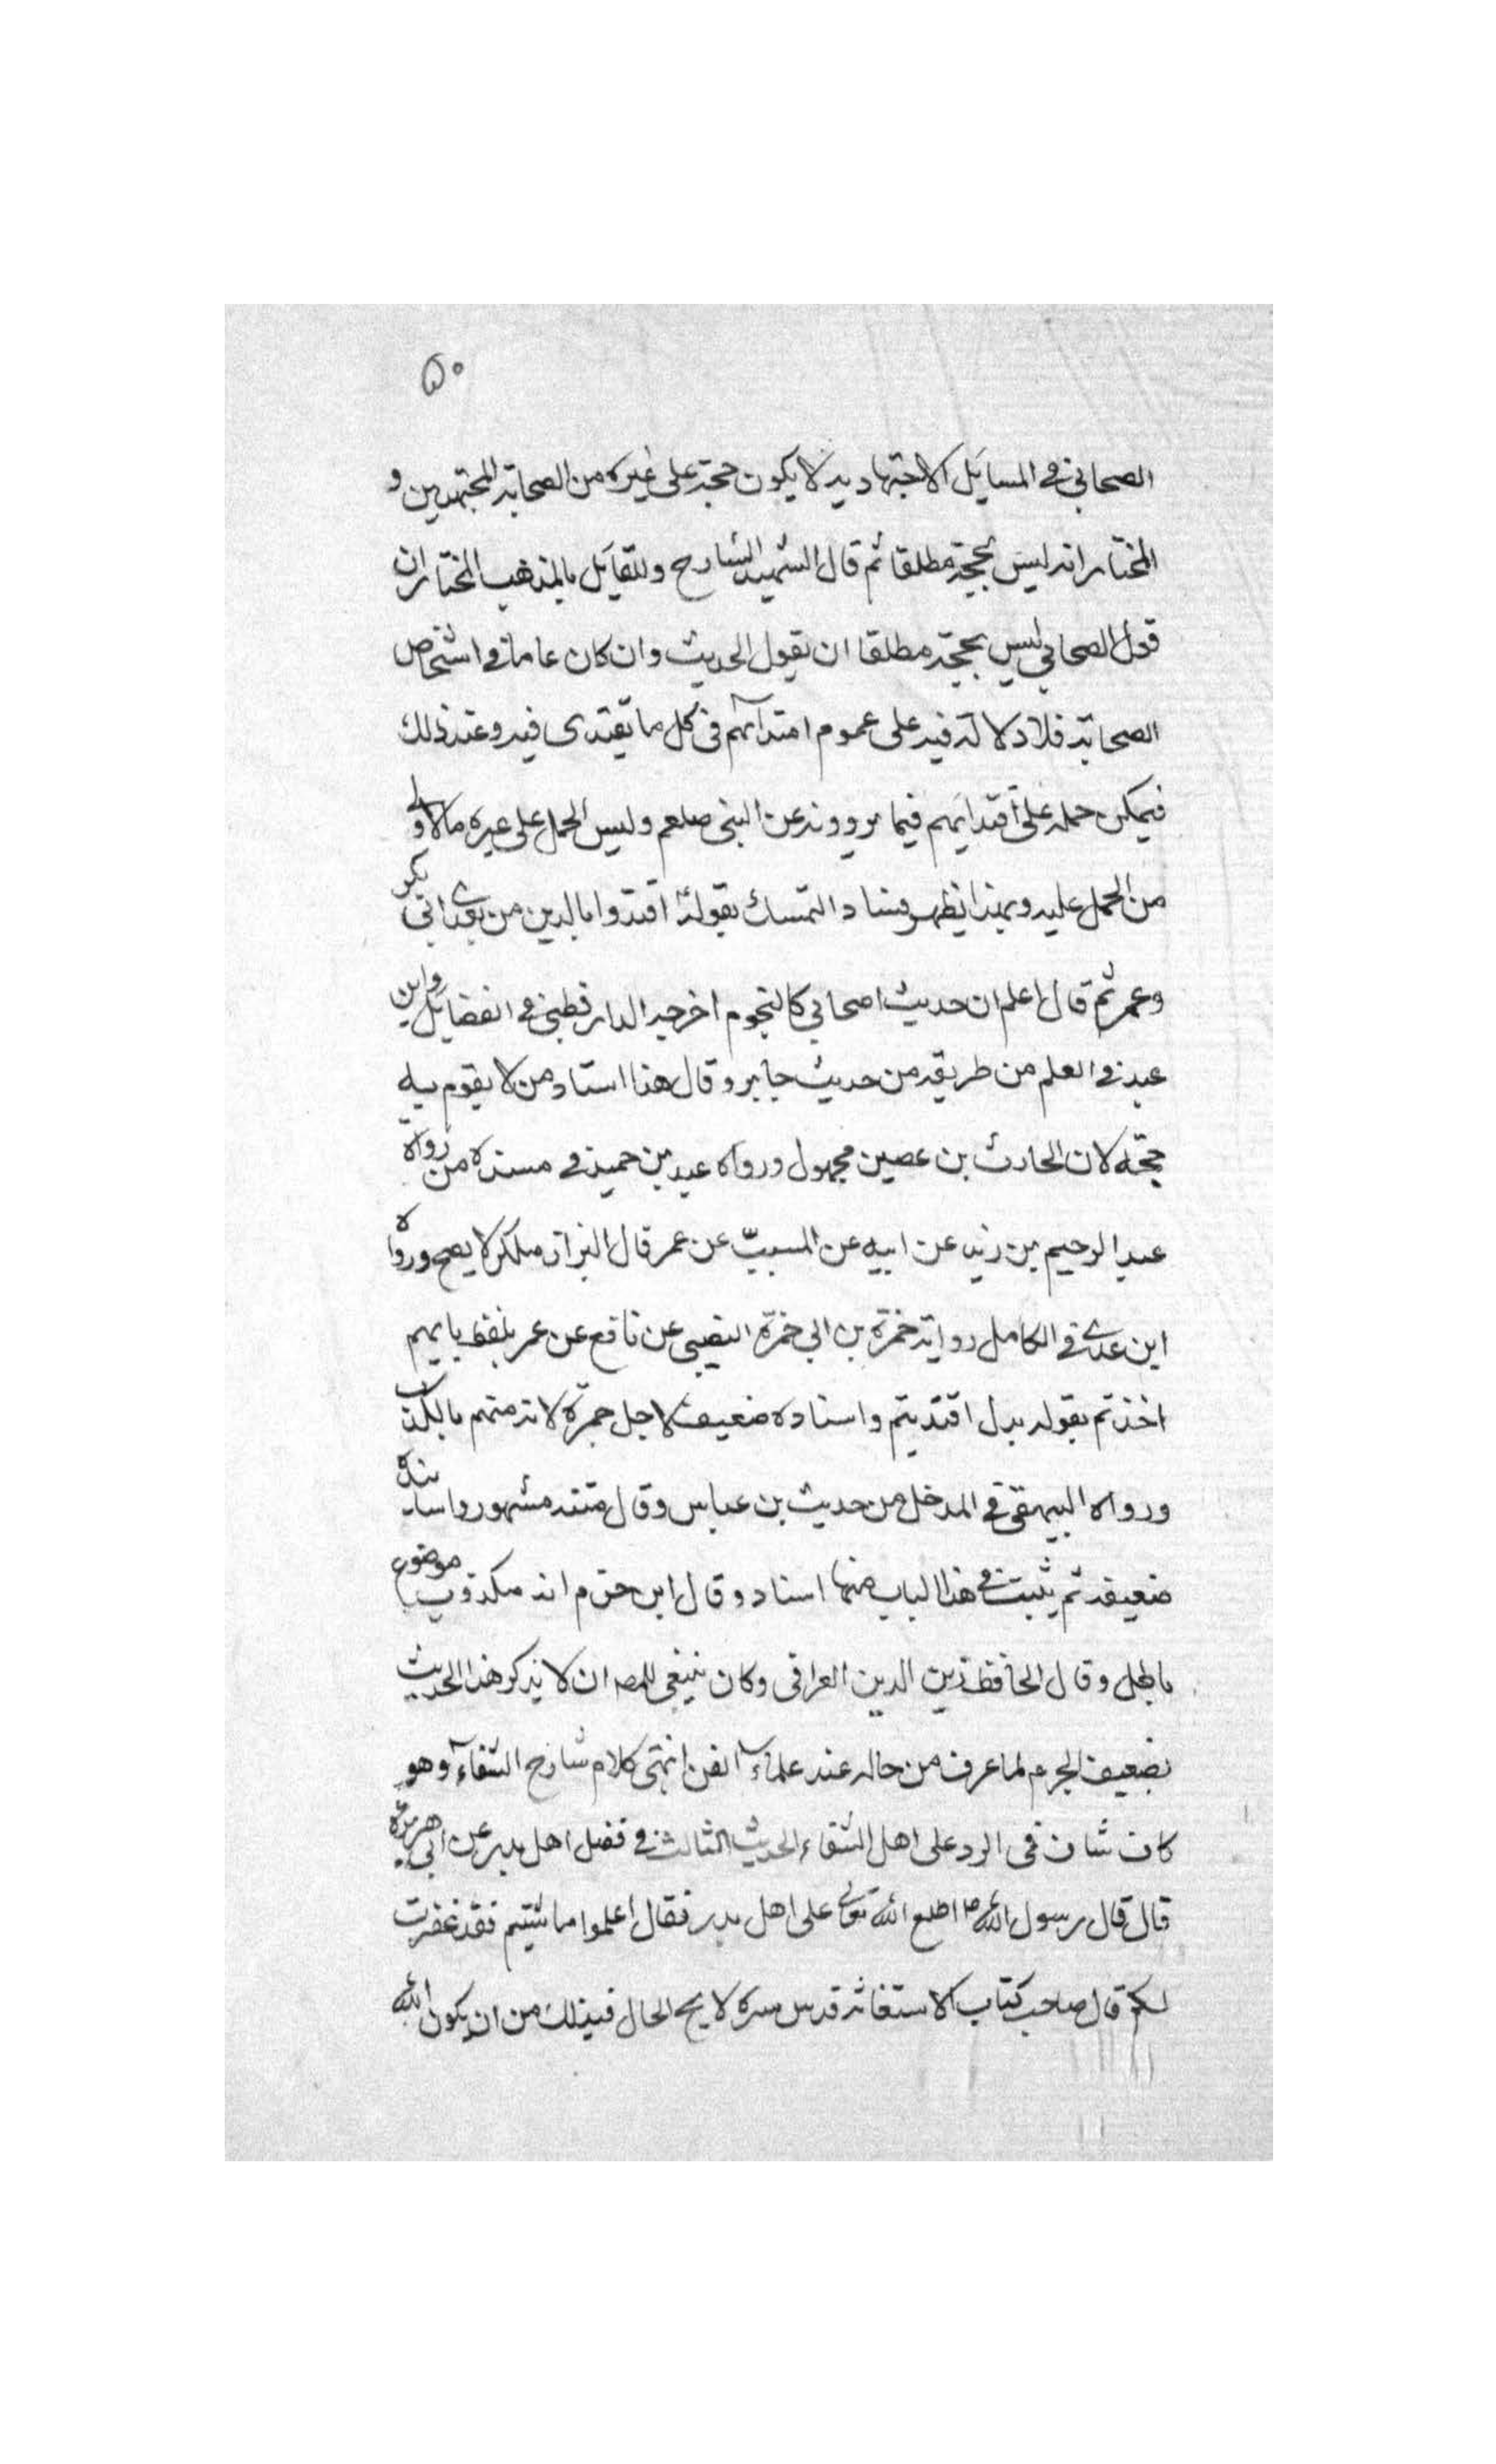 ٥٠
الصحابي في المسايل الاجتهاديه لا يكون حجة على غيره من الصحابة المجتهدين و
المختار انه ليس بحجة مطلقا ثم قال الشهيد الشارح وللقايل بالمذهب المختار ان
قول الصحابي ليس بحجة مطلقا ان يقول الحديث وان كان عاما في اشخاص
الصحابة فلا دلالة فيه على عموم امتدآئهم في كل ما يقتدى فيه وعند ذلك
فيمكن حمله على أقتدايهم فيما يروونه عن النبي صلعم وليس الحمل على غيره مالاولى
من الحمل عليه وبهذا يظهر فساد التمسك بقوله اقتدوا بالدين من بعدى ابي بكر
وعمر ثم قال اعلم ان حديث اصحابي كالنجوم اخرجه الدارقطني في الفضايل وابن
عبد في العلم من طريقه من حديث جابر وقال هذا اسناد من لا يقوم به
حجة لان الحادث بن عصين مجهول ورواه عبد بن حميد في مسنده من رواة
عبد الرحيم بن زيد عن ابيه عن المسيب عن عمر قال البزاز منكر لا يصح ورواه
ابن عدى في الكامل رواية حمزة بن ابي حمزة النصيبى عن نافع عن عمر بلفظ بايهم
اخذتم بقوله بدل اقتديتم واسناده ضعيف لاجل حمزة لانه متهم بالكذب
ورواه البيهقى في المدخل من حديث بن عباس وقال متنه مشهور واسانيده
ضعيفه ثم يثبت في هذا الباب منها اسناد وقال ابن حزم انه مكذوب موضوع
باطل وقال الحافظ زين الدين العراقى وكان ينبغى للمصـ ان لا يذكر هذا الحديث
بضعيف الجرم لما عرف من حاله عند علمآء الفن انتهى كلام شارح الشفاء وهو
كاف شاف فى الرد على اهل الشقاء الحديث الثالث في فضل اهل بدر عن ابي هريرة
قال قال رسول الله ص اطلع الله تعالى على اهل بدر فقال اعلموا ما شئتم فقد غفرت
لكم قال صاحب كتاب الاستغاثه قدس سره لايح الحال في ذلك من ان يكون الله